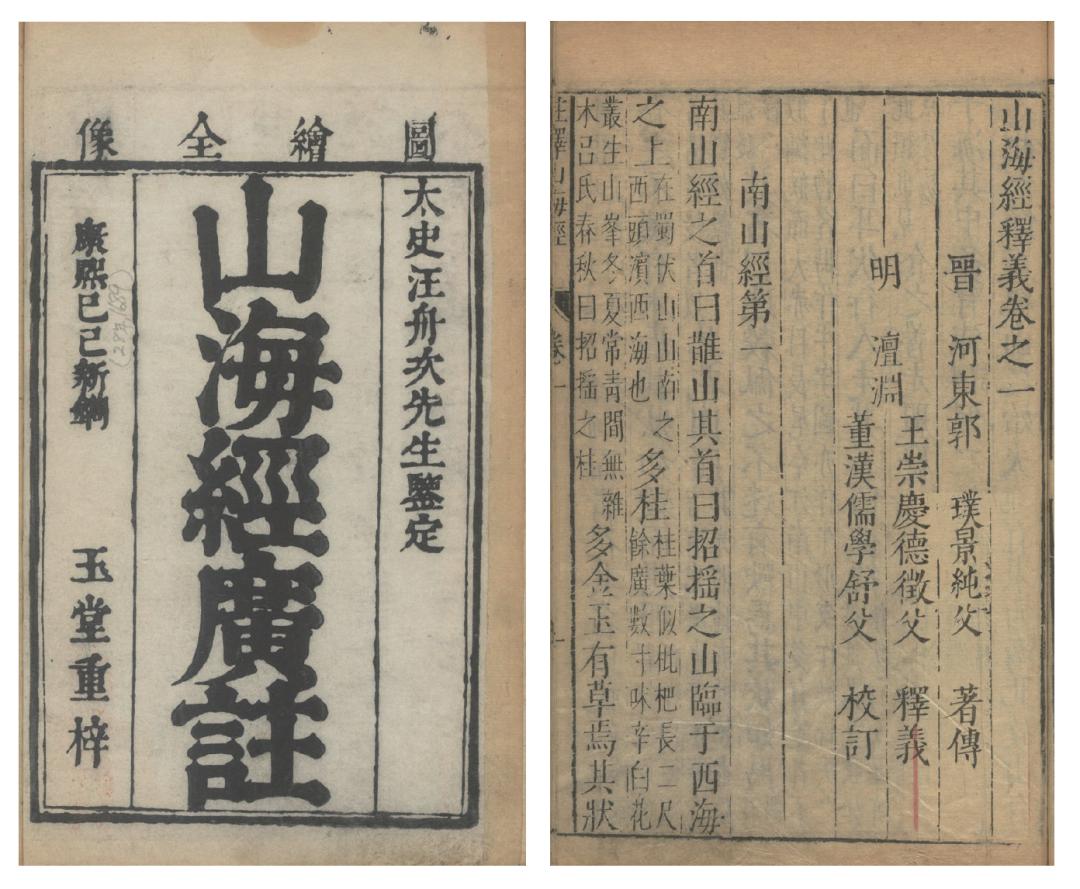 圖繪全像
太史汪舟次先生鑒定
山海經廣註
康熙己巳新鐫
玉堂重梓
山海經釋義卷之一
晉河東郭璞景純父著傳
明澶淵王崇慶德徵父釋義
董漢儒學舒父校訂
南山經第一
南山經之首曰䧿山其首曰招搖之山臨于西海
之上在蜀伏山山南之西頭濱西海也多桂桂葉似枇杷長二尺餘廣數寸味辛白花
叢生山峯冬夏常青間無雜木呂氏春秋曰招搖之桂多金玉有草焉其狀
註釋山海經 卷一